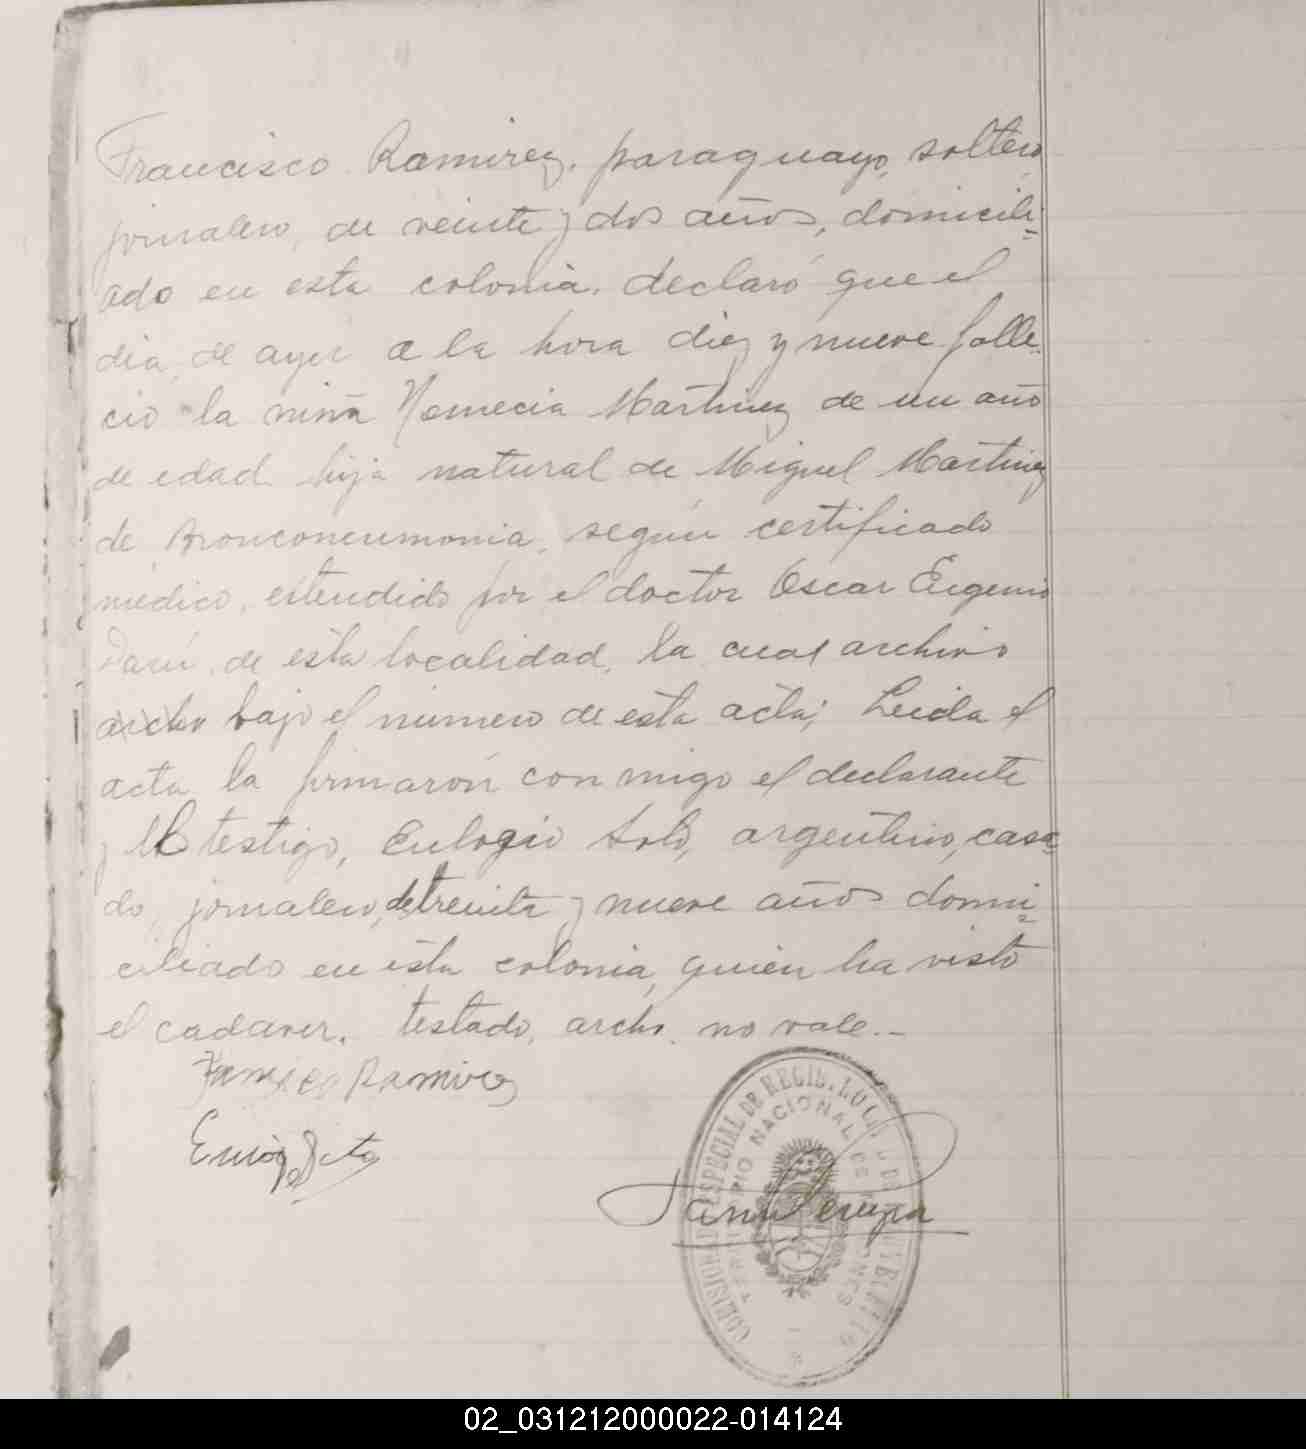 Francisco Ramirez, paraguayo, soltero
jornalero, de veinte y dos años, domicili-
ado en esta colonia, declaró que el
dia, de ayer a la hora diez y nueve falle-
cio la niña Nemecia Martinez de un año
de edad hija natural de Miguel Martinez
de Bronconeumonia, según certificado
medico, estendido por el doctor Oscar Eugenio
de esta localidad, la cual archivo
archv bajo el número de esta acta; Leida el
acta la firmarón con migo el declarante
y el testigo, Eulogio Soto, argentino, casa-
do, jornalero, de treinta y nueve años domi-
ciliado en esta colonia, quien ha visto
el cadaver. testado, archv. no vale.-
Francisco Ramirez
Soto
COMISIONADO ESPECIAL DE REGIS.
TERRITORIO NACIONAL DE MISIONES
02_031212000022-014124